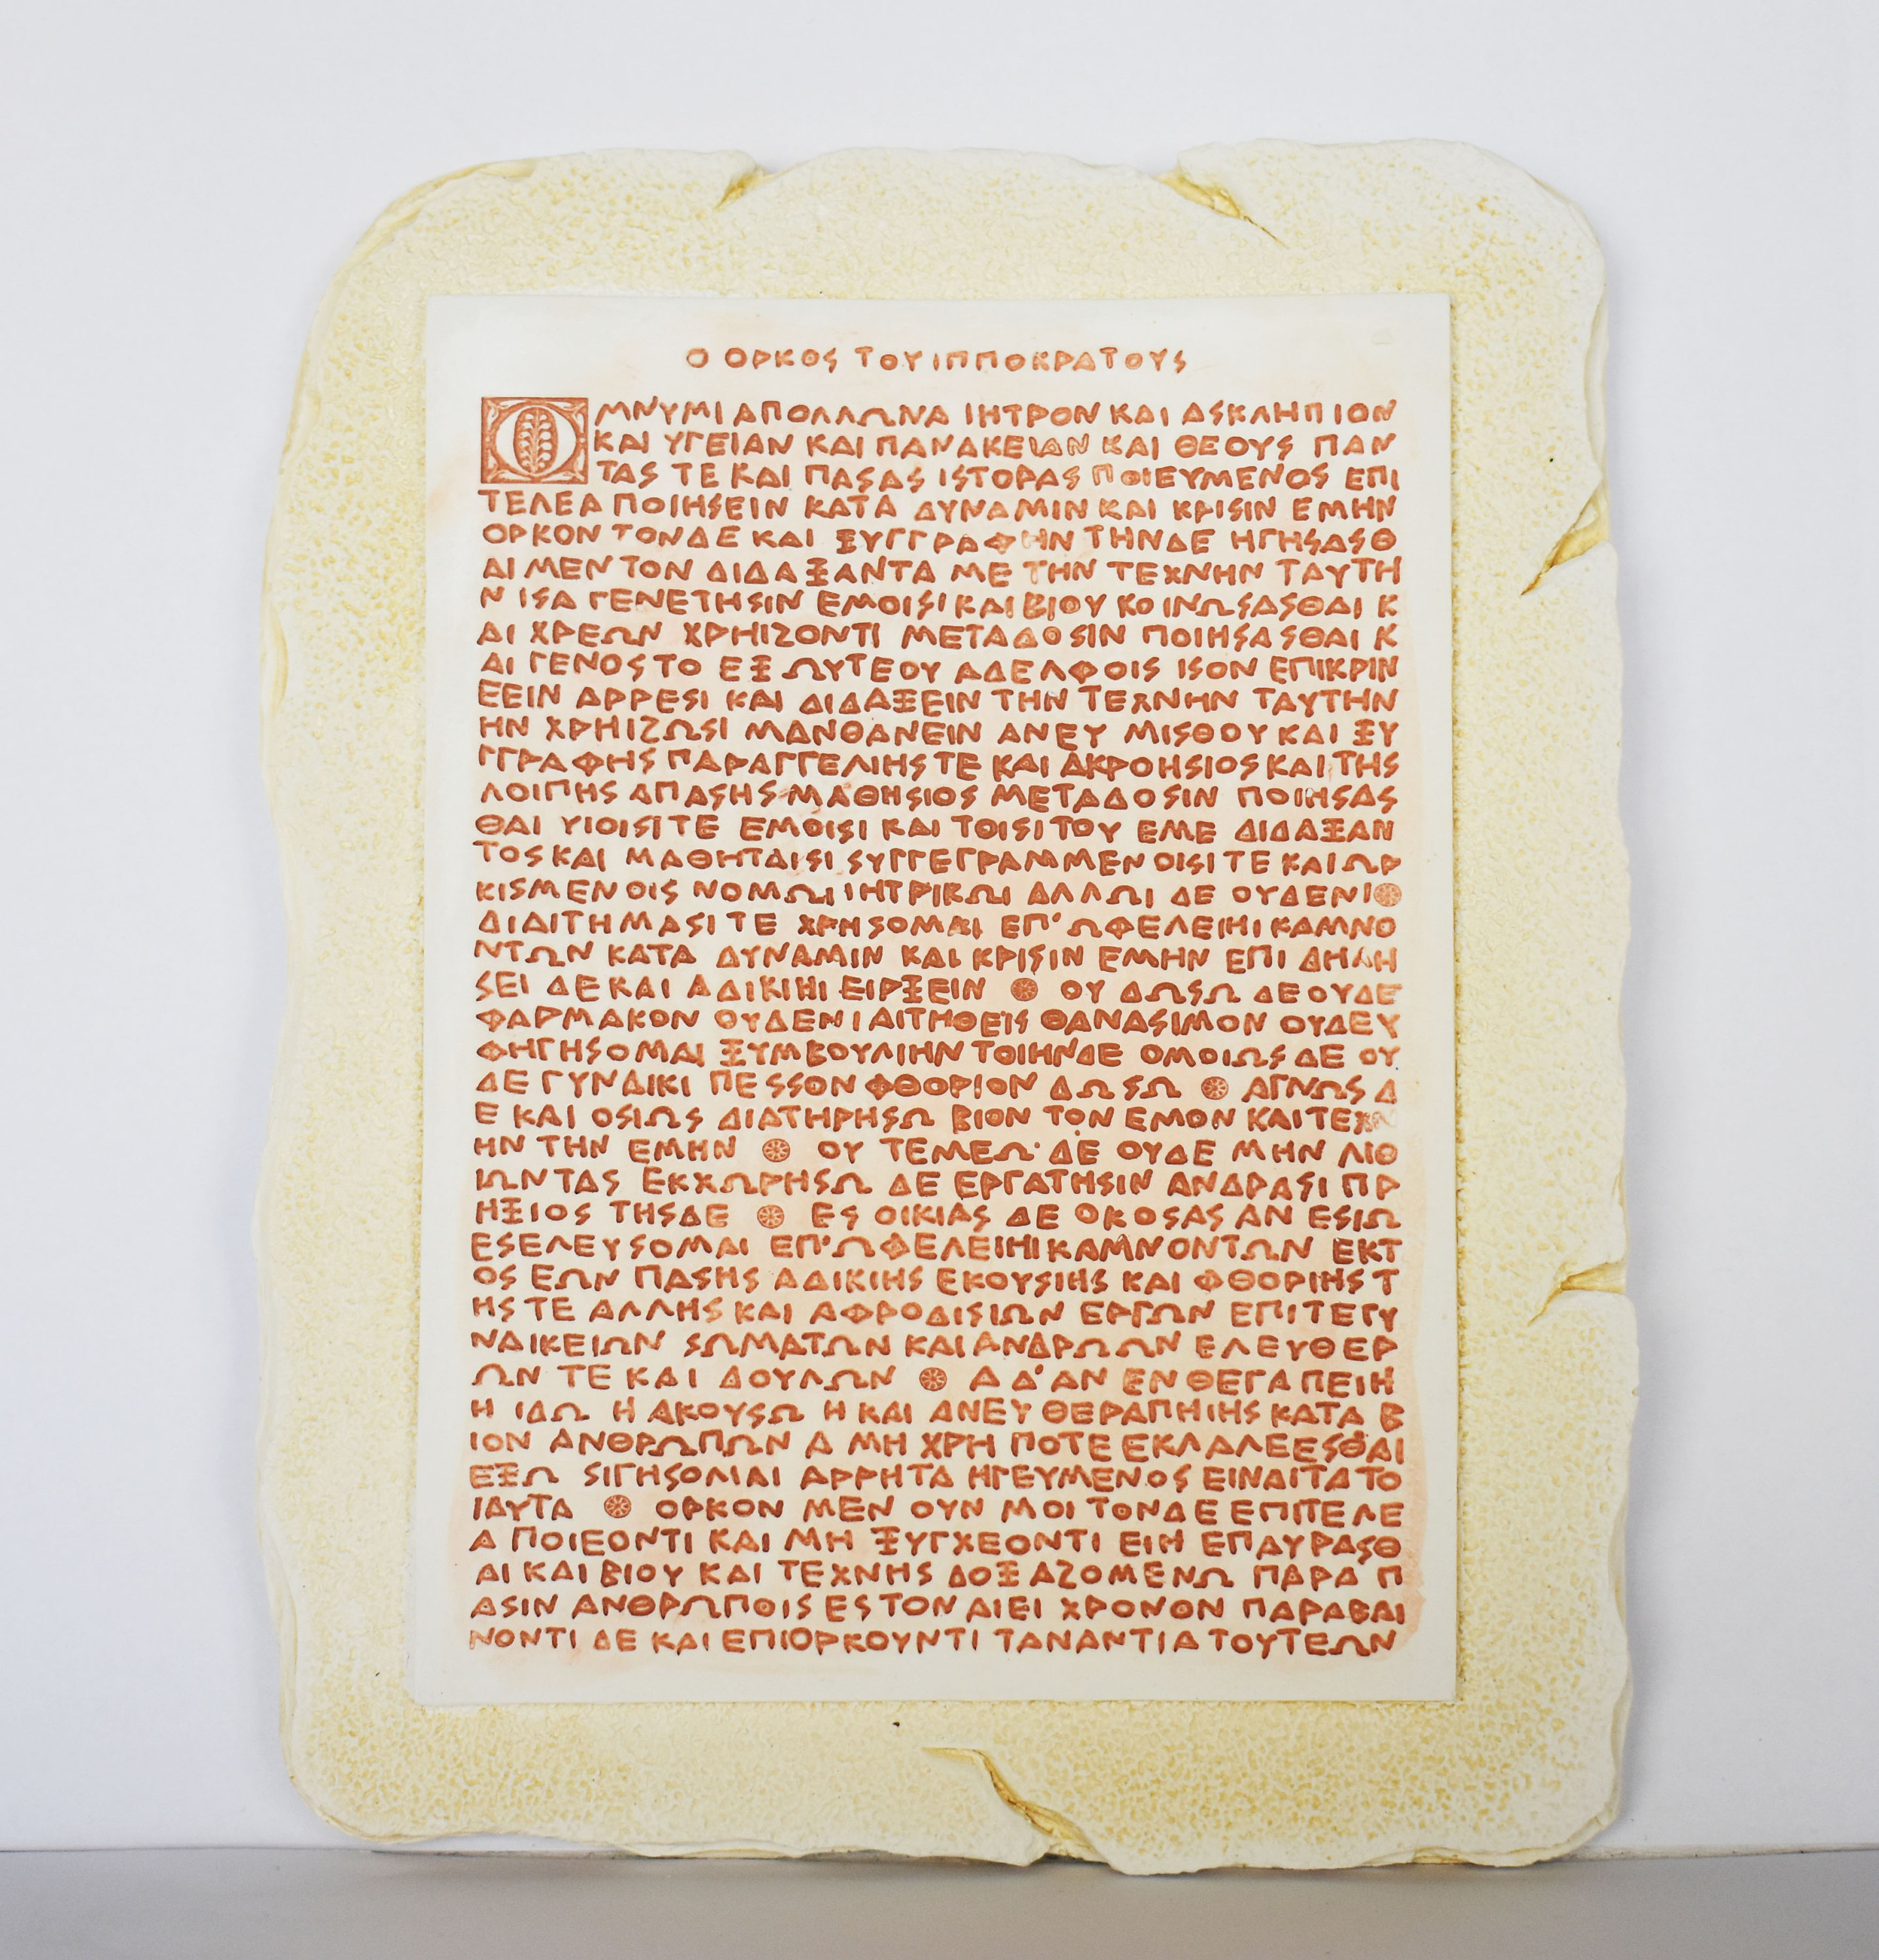 Ο ΟΡΚΟΣ ΤΟΥ ΙΠΠΟΚΡΑΤΟΥΣ
ΟΜΝΥΜΙ ΑΠΟΛΛΩΝΑ ΙΗΤΡΟΝ ΚΑΙ ΑΣΚΛΗΠΙΟΝ
ΚΑΙ ΥΓΕΙΑΝ ΚΑΙ ΠΑΝΑΚΕΙΑΝ ΚΑΙ ΘΕΟΥΣ ΠΑΝ
ΤΑΣ ΤΕ ΚΑΙ ΠΑΣΑΣ ΙΣΤΟΡΑΣ ΠΟΙΕΥΜΕΝΟΣ ΕΠΙ
ΤΕΛΕΑ ΠΟΙΗΣΕΙΝ ΚΑΤΑ ΔΥΝΑΜΙΝ ΚΑΙ ΚΡΙΣΙΝ ΕΜΗΝ
ΟΡΚΟΝ ΤΟΝΔΕ ΚΑΙ ΞΥΓΓΡΑΦΗΝ ΤΗΝΔΕ ΗΓΗΣΑΣΘ
ΑΙ ΜΕΝ ΤΟΝ ΔΙΔΑΞΑΝΤΑ ΜΕ ΤΗΝ ΤΕΧΝΗΝ ΤΑΥΤΗ
Ν ΙΣΑ ΓΕΝΕΤΗΣΙΝ ΕΜΟΙΣΙ ΚΑΙ ΒΙΟΥ ΚΟΙΝΩΣΑΣΘΑΙ Κ
ΑΙ ΧΡΕΩΝ ΧΡΗΙΖΟΝΤΙ ΜΕΤΑΔΟΣΙΝ ΠΟΙΗΣΑΣΘΑΙ Κ
ΑΙ ΓΕΝΟΣ ΤΟ ΕΞ ΩΥΤΕΟΥ ΑΔΕΛΦΟΙΣ ΙΣΟΝ ΕΠΙΚΡΙΝ
ΕΕΙΝ ΑΡΡΕΣΙ ΚΑΙ ΔΙΔΑΞΕΙΝ ΤΗΝ ΤΕΧΝΗΝ ΤΑΥΤΗΝ
ΗΝ ΧΡΗΙΖΩΣΙ ΜΑΝΘΑΝΕΙΝ ΑΝΕΥ ΜΙΣΘΟΥ ΚΑΙ ΞΥ
ΓΓΡΑΦΗΣ ΠΑΡΑΓΓΕΛΙΗΣ ΤΕ ΚΑΙ ΑΚΡΟΗΣΙΟΣ ΚΑΙ ΤΗΣ
ΛΟΙΠΗΣ ΑΠΑΣΗΣ ΜΑΘΗΣΙΟΣ ΜΕΤΑΔΟΣΙΝ ΠΟΙΗΣΑΣ
ΘΑΙ ΥΙΟΙΣΙ ΤΕ ΕΜΟΙΣΙ ΚΑΙ ΤΟΙΣΙ ΤΟΥ ΕΜΕ ΔΙΔΑΞΑΝ
ΤΟΣ ΚΑΙ ΜΑΘΗΤΑΙΣΙ ΣΥΓΓΕΓΡΑΜΜΕΝΟΙΣΙ ΤΕ ΚΑΙ ΩΡ
ΚΙΣΜΕΝΟΙΣ ΝΟΜΩΙ ΙΗΤΡΙΚΩΙ ΑΛΛΩΙ ΔΕ ΟΥΔΕΝΙ
ΔΙΑΙΤΗΜΑΣΙ ΤΕ ΧΡΗΣΟΜΑΙ ΕΠ' ΩΦΕΛΕΙΗΙ ΚΑΜΝΟ
ΝΤΩΝ ΚΑΤΑ ΔΥΝΑΜΙΝ ΚΑΙ ΚΡΙΣΙΝ ΕΜΗΝ ΕΠΙ ΔΗΛΗ
ΣΕΙ ΔΕ ΚΑΙ ΑΔΙΚΙΗΙ ΕΙΡΞΕΙΝ ΟΥ ΔΩΣΩ ΔΕ ΟΥΔΕ
ΦΑΡΜΑΚΟΝ ΟΥΔΕΝΙ ΑΙΤΗΘΕΙΣ ΘΑΝΑΣΙΜΟΝ ΟΥΔΕ Υ
ΦΗΓΗΣΟΜΑΙ ΞΥΜΒΟΥΛΙΗΝ ΤΟΙΗΝΔΕ ΟΜΟΙΩΣ ΔΕ ΟΥ
ΔΕ ΓΥΝΑΙΚΙ ΠΕΣΣΟΝ ΦΘΟΡΙΟΝ ΔΩΣΩ ΑΓΝΩΣ Δ
Ε ΚΑΙ ΟΣΙΩΣ ΔΙΑΤΗΡΗΣΩ ΒΙΟΝ ΤΟΝ ΕΜΟΝ ΚΑΙ ΤΕΧΝ
ΗΝ ΤΗΝ ΕΜΗΝ ΟΥ ΤΕΜΕΩ ΔΕ ΟΥΔΕ ΜΗΝ ΛΙΘ
ΙΩΝΤΑΣ ΕΚΧΩΡΗΣΩ ΔΕ ΕΡΓΑΤΗΣΙΝ ΑΝΔΡΑΣΙ ΠΡ
ΗΞΙΟΣ ΤΗΣΔΕ ΕΣ ΟΙΚΙΑΣ ΔΕ ΟΚΟΣΑΣ ΑΝ ΕΣΙΩ
ΕΣΕΛΕΥΣΟΜΑΙ ΕΠ' ΩΦΕΛΕΙΗΙ ΚΑΜΝΟΝΤΩΝ ΕΚΤ
ΟΣ ΕΩΝ ΠΑΣΗΣ ΑΔΙΚΙΗΣ ΕΚΟΥΣΙΗΣ ΚΑΙ ΦΘΟΡΙΗΣ Τ
ΗΣ ΤΕ ΑΛΛΗΣ ΚΑΙ ΑΦΡΟΔΙΣΙΩΝ ΕΡΓΩΝ ΕΠΙ ΤΕ ΓΥ
ΝΑΙΚΕΙΩΝ ΣΩΜΑΤΩΝ ΚΑΙ ΑΝΔΡΩΩΝ ΕΛΕΥΘΕΡ
ΩΝ ΤΕ ΚΑΙ ΔΟΥΛΩΝ Α Δ' ΑΝ ΕΝ ΘΕΓΑΠΕΙΗ
Η ΙΔΩ Η ΑΚΟΥΣΩ Η ΚΑΙ ΑΝΕΥ ΘΕΡΑΠΗΙΗΣ ΚΑΤΑ Β
ΙΟΝ ΑΝΘΡΩΠΩΝ Α ΜΗ ΧΡΗ ΠΟΤΕ ΕΚΛΑΛΕΕΣΘΑΙ
ΕΞΩ ΣΙΓΗΣΟΜΑΙ ΑΡΡΗΤΑ ΗΓΕΥΜΕΝΟΣ ΕΙΝΑΙ ΤΑ ΤΟ
ΙΑΥΤΑ ΟΡΚΟΝ ΜΕΝ ΟΥΝ ΜΟΙ ΤΟΝΔΕ ΕΠΙΤΕΛΕ
Α ΠΟΙΕΟΝΤΙ ΚΑΙ ΜΗ ΞΥΓΧΕΟΝΤΙ ΕΙΗ ΕΠΑΥΡΑΣΘ
ΑΙ ΚΑΙ ΒΙΟΥ ΚΑΙ ΤΕΧΝΗΣ ΔΟΞΑΖΟΜΕΝΩ ΠΑΡΑ Π
ΑΣΙΝ ΑΝΘΡΩΠΟΙΣ ΕΣ ΤΟΝ ΑΙΕΙ ΧΡΟΝΟΝ ΠΑΡΑΒΑΙ
ΝΟΝΤΙ ΔΕ ΚΑΙ ΕΠΙΟΡΚΟΥΝΤΙ ΤΑΝΑΝΤΙΑ ΤΟΥΤΕΩΝ